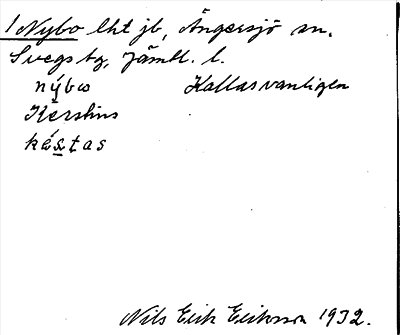 1 Nybo lht jb, Ängersjö sn.
Svegs tg, Jämtl. l.
nýbω Kallas vanligen
Kerstins
kæ̀s̲tas
Nils Erik Eriksson 1932.